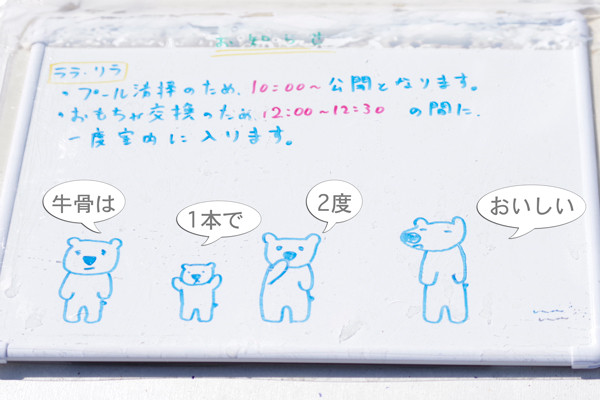 おしらせ
ララ・リラ
・プール清掃のため、10:00～公開となります。
・おもちゃ交換のため、12:00～12:30 の間に、
一度室内に入ります。
牛骨は
1本で
2度
おいしい